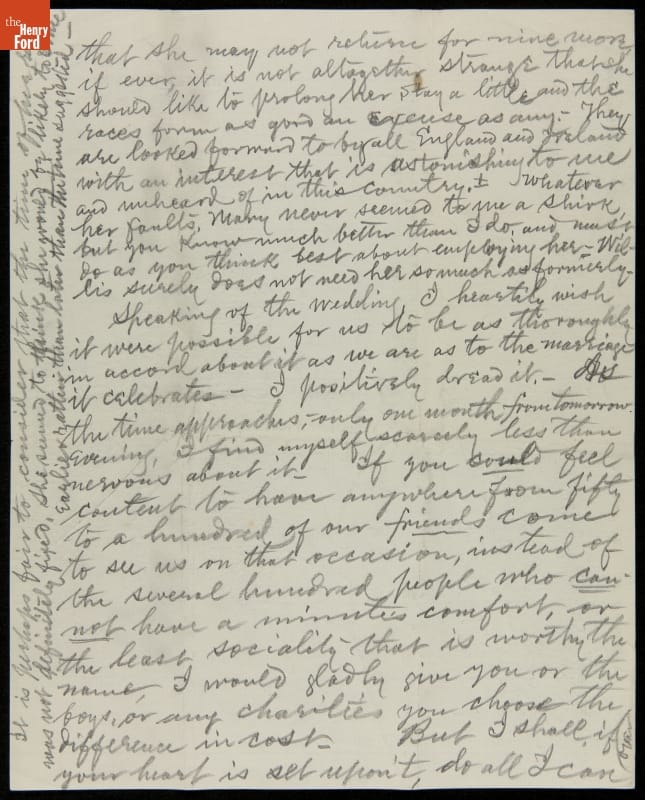 the
Henry
Ford
that she may not return for nine more,
if ever, it is not altogether strange that she
should like to prolong her stay a little and the
races form as good an excuse as any.- They
are looked forward to by all England and Ireland
with an interest that is astonishing to me
and unheard of in this country.± Whatever
her faults, Mary never seemed to me a shirk,
but you know much better than I do, and must
do as you think best about employing her- Wil-
lis surely does not need her so much as formerly-
Speaking of the wedding, I heartily wish
it were possible for us to be as thoroughly
in accord about it as we are as to the marriage
it celebrates- I positively dread it.- As
the time approaches,-only one month from tomorrow
evening, I find myself scarcely less than
nervous about it- If you could feel
content to have anywhere from fifty
to a hundred of our friends come
to see us on that occasion, instead of
the several hundred people who can-
not have a minute's comfort, or
the least sociality that is worthy the
name, I would gladly give you or the
boys, or any charities you choose the
difference in cost- But I shall, if
your heart is set upon't, do all I can
over
It is perhaps fair to consider that the time of his
was not definitely fixed, she seemed to think she would be likely to
Earlier rather than later than the time suggested-